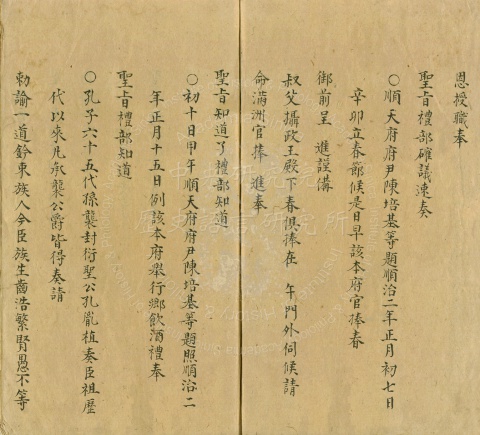 恩授職奉
聖旨禮部確議速奏
○順天府府尹陳培基等題順治二年正月初七日
辛卯立春節候是日早該本府官捧春
御前呈 進謹備
叔父攝政王殿下春俱捧在 午門外伺候請
命滿洲官捧 進奉
聖旨知道了禮部知道
○初十日甲午順天府府尹陳培基等題照順治二
年正月十五日例該本府舉行鄉飲酒禮奉
聖旨禮部知道
○孔子六十五代孫襲封衍聖公孔胤植奏臣祖歷
代以來凡承襲公爵皆得奏請
勅諭一道鈐束族人今臣族生齒浩繁賢愚不等